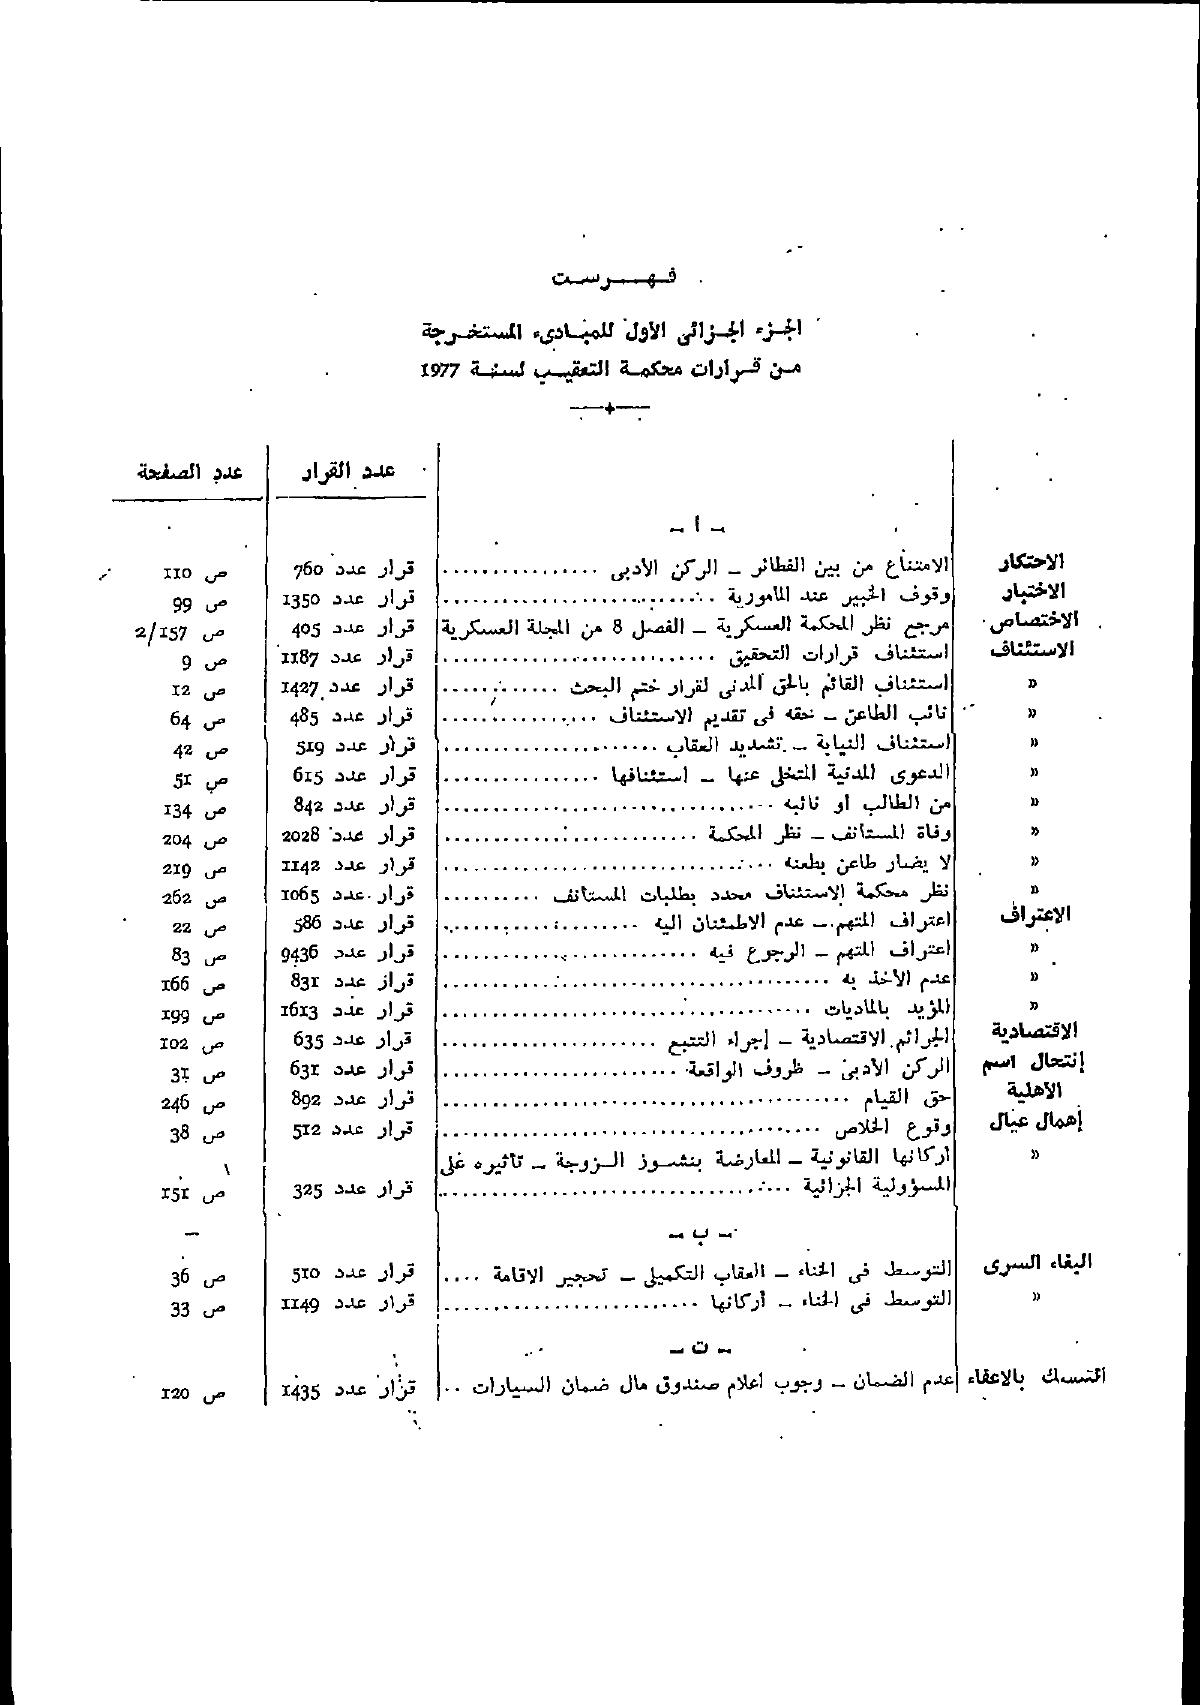 فهرست
الجزء الجزائى الأول للمبادىء المستخرجة
من قرارات محكمة التعقيب لسنة 1977
عدد القرار عدد الصفحة
ـ ا ـ
الاحتكار الامتناع من بين الفطائر ـ الركن الأدبى ............... قرار عدد 760 ص 110
الاختبار وقوف الخبير عند المامورية ............... قرار عدد 1350 ص 99
الاختصاص مرجع نظر المحكمة العسكرية ـ الفصل 8 من المجلة العسكرية قرار عدد 405 ص 2/157
الاستئناف استئناف قرارات التحقيق ............... قرار عدد 1187 ص 9
» استئناف القائم بالحق المدنى لقرار ختم البحث ............ قرار عدد 1427 ص 12
» نائب الطاعن ـ حقه فى تقديم الاستئناف ............... قرار عدد 485 ص 64
» استئناف النيابة ـ تشديد العقاب ............... قرار عدد 519 ص 42
» الدعوى المدنية المتخلى عنها ـ استئنافها ............... قرار عدد 615 ص 51
» من الطالب او نائبه ............... قرار عدد 842 ص 134
» وفاة المستانف ـ نظر المحكمة ............... قرار عدد 2028 ص 204
» لا يضار طاعن بطعنه ............... قرار عدد 1142 ص 219
» نظر محكمة الاستئناف محدد بطلبات المستانف .......... قرار عدد 1065 ص 262
الاعتراف اعتراف المتهم ـ عدم الاطمئنان اليه ............... قرار عدد 586 ص 22
» اعتراف المتهم ـ الرجوع فيه ............... قرار عدد 9436 ص 83
» عدم الأخذ به ............... قرار عدد 831 ص 166
» المؤيد بالماديات ............... قرار عدد 1613 ص 199
الاقتصادية الجرائم الاقتصادية ـ إجراء التتبع ............... قرار عدد 635 ص 102
إنتحال اسم الركن الأدبى ـ ظروف الواقعة ............... قرار عدد 631 ص 31
الأهلية حق القيام ............... قرار عدد 892 ص 246
إهمال عيال وقوع الخلاص ............... قرار عدد 512 ص 38
» أركانها القانونية ـ المعارضة بنشوز الزوجة ـ تاثيره على
المسؤولية الجزائية ............... قرار عدد 325 ص 151
ـ ب ـ
البغاء السرى التوسط فى الخناء ـ العقاب التكميلى ـ تحجير الاقامة .... قرار عدد 510 ص 36
» التوسط فى الخناء ـ أركانها ............... قرار عدد 1149 ص 33
ـ ت ـ
التمسك بالاعفاء عدم الضمان ـ وجوب اعلام صندوق مال ضمان السيارات .. قرار عدد 1435 ص 120